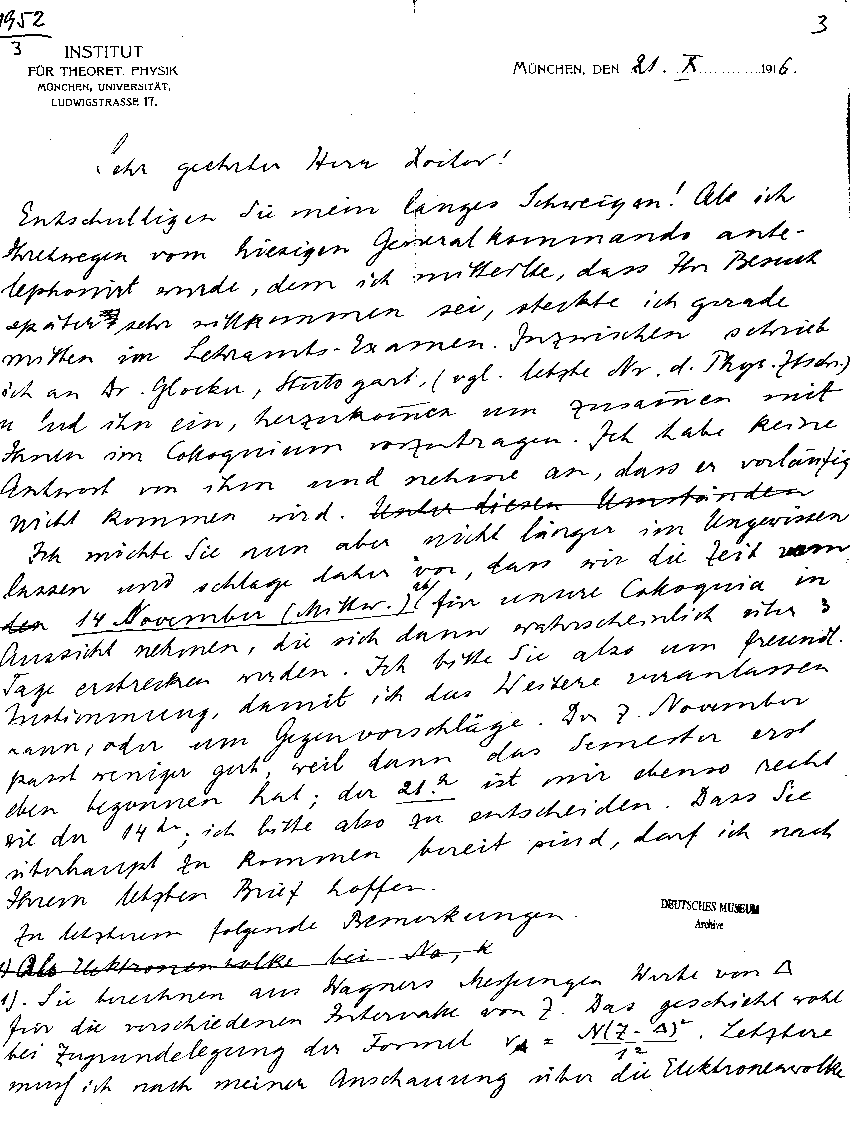 1952
3
3
INSTITUT
FÜR THEORET. PHYSIK
MÜNCHEN, UNIVERSITÄT,
LUDWIGSTRASSE 17.
MÜNCHEN, DEN 21. X. 1916.
Sehr geehrter Herr Doktor!
Entschuldigen Sie mein langes Schweigen! Als ich
Ihretwegen vom hiesigen Generalkommando ante-
lephoniert wurde, dem ich mitteilte, dass Ihr Besuch
später sehr willkommen sei, steckte ich gerade
mitten im Lehramts-Examen. Inzwischen schrieb
ich an Dr. Glocker, Stuttgart, (vgl. letzte Nr. d. Phys. Ztschr.)
u lud ihn ein, herzukom̅en um zusam̅en mit
Ihnen im Colloquium vorzutragen. Ich habe keine
Antwort von ihm und nehme an, dass er vorläufig
nicht kommen wird. Unter diesen Umständen
Ich möchte Sie nun aber nicht länger im Ungewissen
lassen und schlage daher vor, dass wir die Zeit vom
den 14 November (Mittw.) ab für unsere Colloquia in
Aussicht nehmen, die sich dann wahrscheinlich über 3
Tage erstrecken werden. Ich bitte Sie also um freundl.
Zustimmung, damit ich das Weitere veranlassen
kann, oder um Gegenvorschläge. Der 7. November
passt weniger gut, weil dann das Semester erst
eben begonnen hat; der 21.te ist mir ebenso recht
wie der 14te; ich bitte also zu entscheiden. Dass Sie
überhaupt zu kommen bereit sind, darf ich nach
Ihrem letzten Brief hoffen.
Zu letzterem folgende Bemerkungen.
DEUTSCHES MUSEUM
Archive
1) Als Elektronenwolke bei Na, K
1). Sie berechnen aus Wagners Messungen Werte von Δ
für die verschiedenen Intervalle von Z. Das geschieht wohl
bei Zugrundelegung der Formel ν_A = N(Z-Δ)²/1². Letztere
muss ich nach meiner Anschauung über die Elektronenwolke